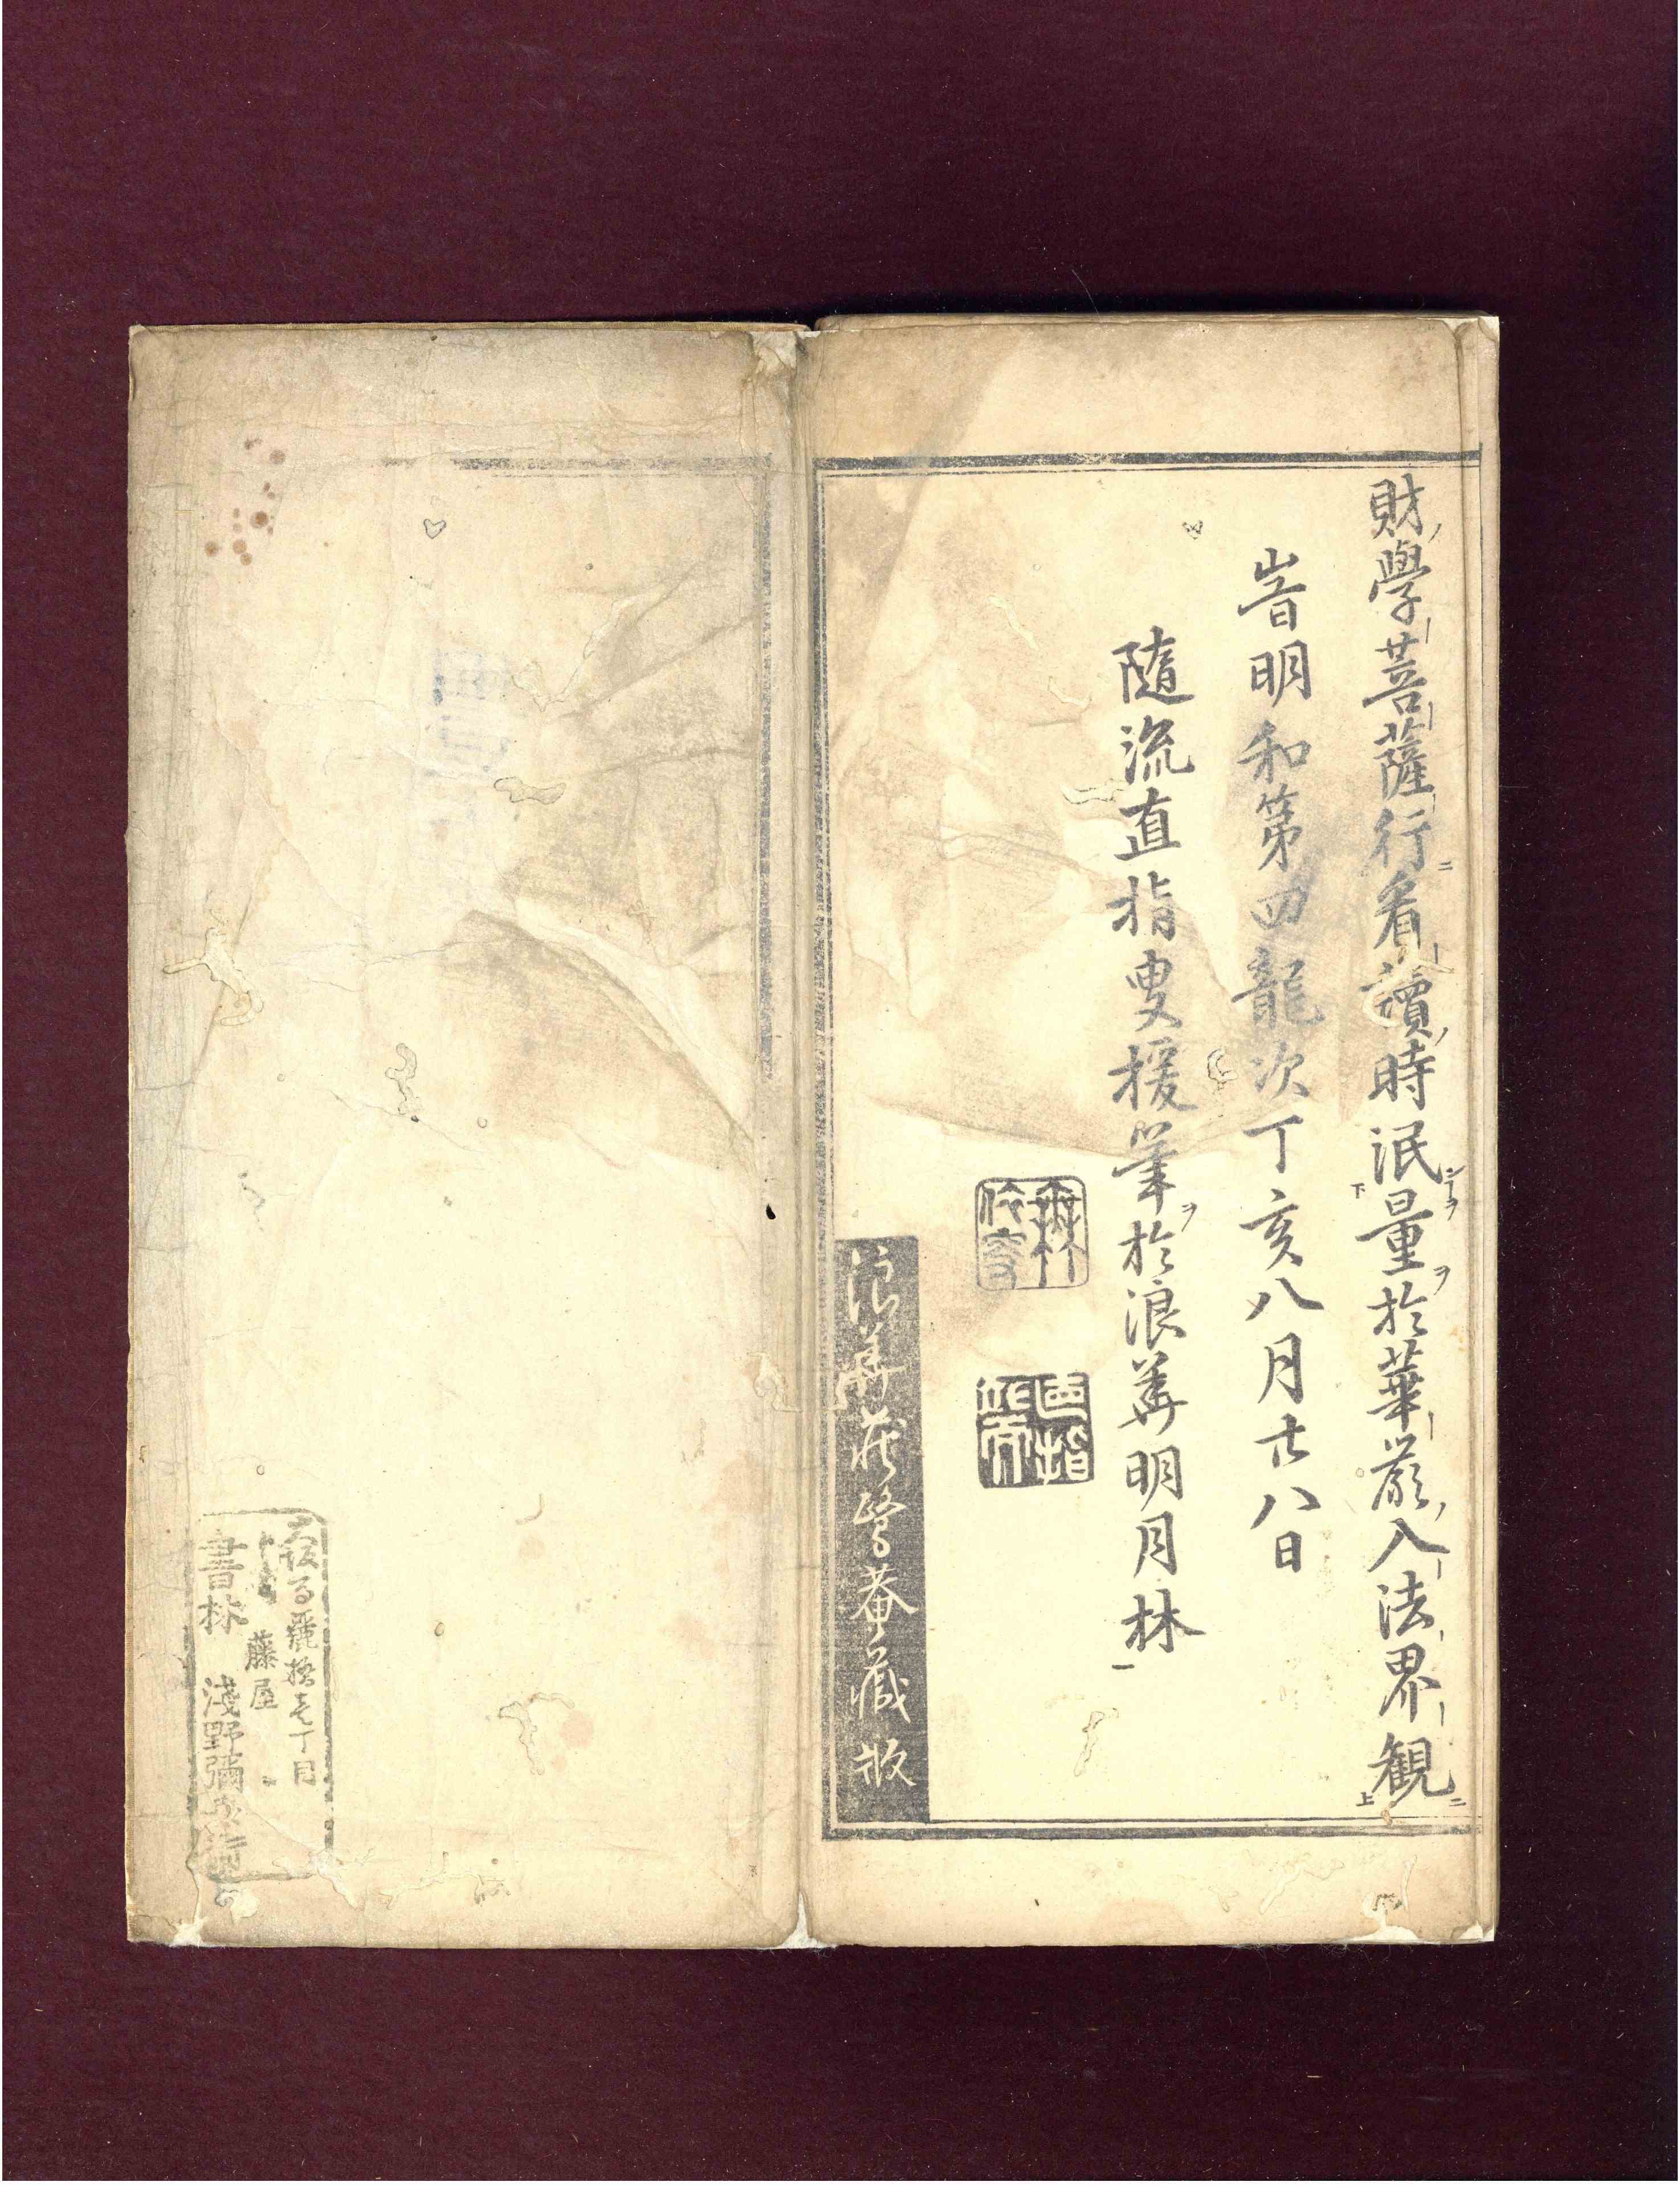 財學菩薩行看讀時泯量於華嚴入法界観
旹明和第四龍次丁亥八月廿八日
隨流直指叟援筆於浪華明月林
直指
浪華 醫菴藏版
拾壱丁目
藤屋
書林 淺野彌